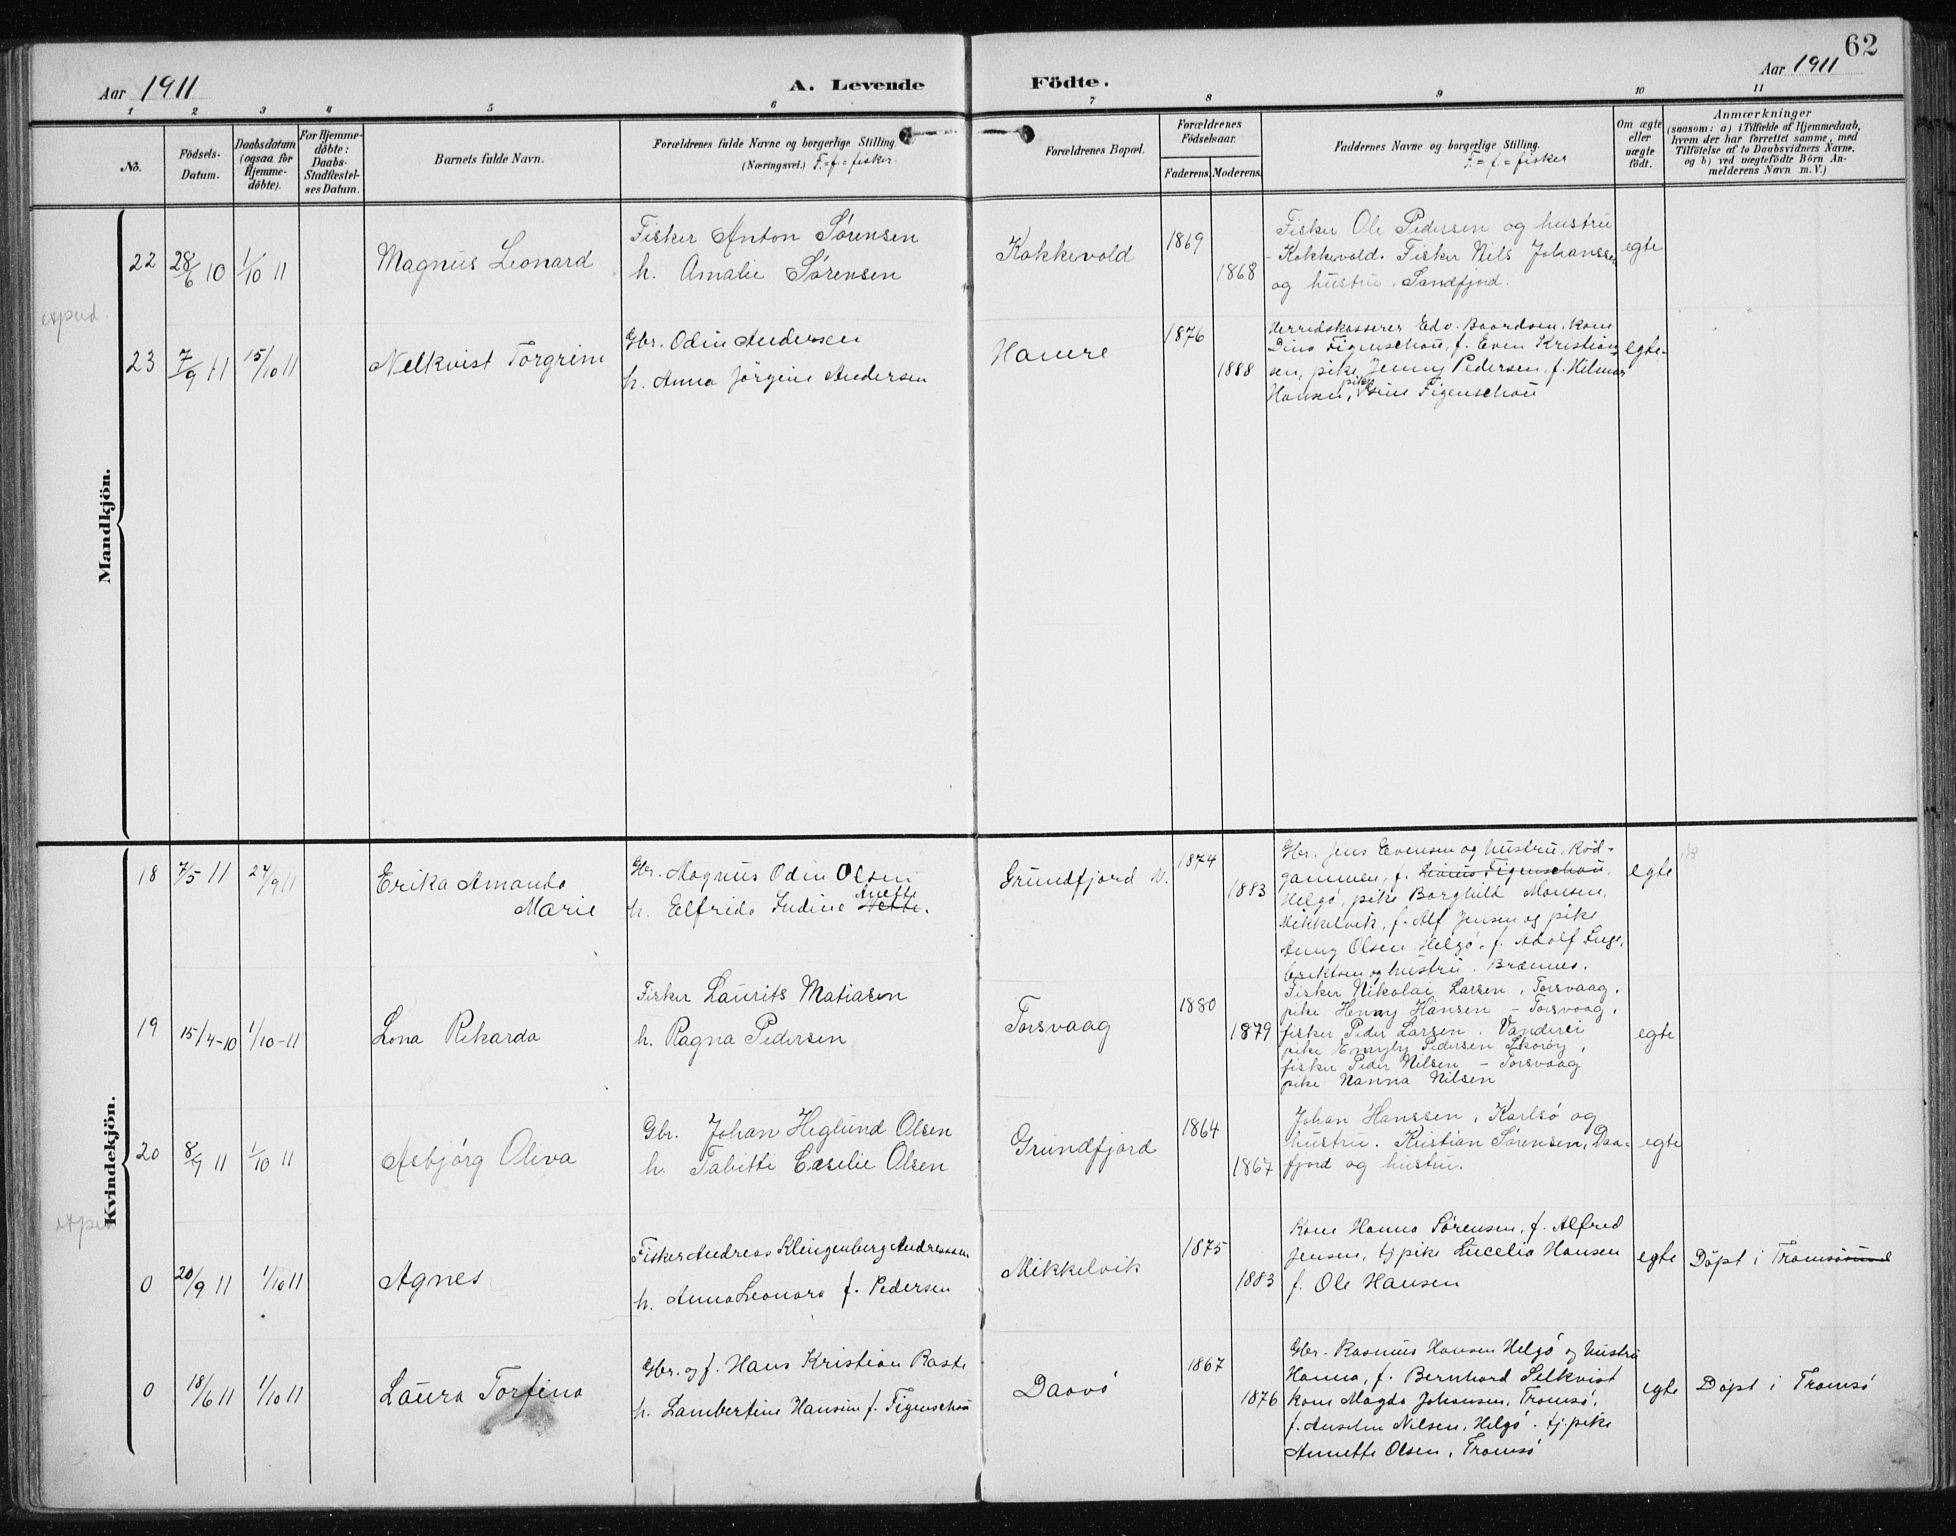 62
Aar 1911
A. Levende Födte.
Aar 1911
1 2 3 4 5 6 7 8 9 10 11
No.
Födsels-Datum.
Daabsdatum (ogsaa for Hjemme-döbte).
For Hjemme-döbte: Daabs-Stadfæstel-ses Datum.
Barnets fulde Navn.
Forældrenes fulde Navne og borgerlige Stilling.
(Næringsvei.) F. = f = fisker.
Forældrenes Bopæl.
Forældrenes Födselsaar.
Faderens. Moderens.
Faddernes Navne og borgerlige Stilling.
F. = f = fisker
Om ægte eller uægte födt.
Anmærkninger
(saasom: a) i Tilfælde af Hjemmedaab, hvem der har forrettet samme, med Tilföielse af to Daabsvidners Navne, og b) ved uægtefödte Börn An-melderens Navn m. V.)
Mandkjön.
22 28/6 10 1/10 11 Magnus Leonard
Fisker Anton Sørensen
h. Amalie Sørensen
Kokkevold 1869 1868
Fisker Ole Pedersen og hustru
- Kokkevold. Fisker Nils Johanssen
og hustru. Sandfjord.
egte
23 7/9 11 15/10 11 Nelkvist Torgrim
Gbr. Odin Andersen
h. Anna Jörgine Andersen
Hamre 1876 1888
Herredskasserer Edv. Baardsen, kone
Dina Figenschou, f. Even Kristian-
sen, pike Jenny Pedersen, f. Hilmar
Hansen, pike Figenschou
egte
Kvindekjön.
18 7/5 11 24/9 11 Erika Amanda
Marie
Gbr. Magnus Odin Olsen
h. Elfrida Indine Nette. Anette
Grundfjord N. 1874 1883
Gbr. Jens Evensen og hustru, Rød-
gammen, f. Figenschou,
Helgö, pike Borghild Monsen,
Mikkelvik, f. Alf Jensen og pike
Olsen Helgö, f. Adolf Inge-
briktsen og hustru. Bræmnes.
egte
19 15/4-10 1/10-11 Lona Rikarda
Fisker Laurits Matiasen
h. Ragna Pedersen
Torsvaag 1880 1879
Fisker Nikolai Larsen, Torsvaag,
pike Henny Hansen - Torsvaag,
fisker Peder Larsen. Vanderei
pike Pedersen Skorøy,
fisker Peder Nilsen - Torsvaag
pike Nanna Nilsen
egte
20 8/9 11 1/10 11 Asbjørg Oliva
Gbr. Johan Heglund Olsen
h. Tabitti Cæselie Olsen
Grundfjord 1864 1867
Johan Hanssen, Karlsö og
hustru. Kristian Sørensen, Daa-
fjord og hustru.
egte
0 20/9 11 1/10 11 Agnes
Fisker Andreas Klingenberg Andreassen
h. Anna Leonora f. Pedersen
Mikkelvik 1875 1883
Kone Hanna Sørensen, f. Alfred
Jensen, tj.pike Lucelia Hansen
f. Ole Hansen
egte
Döpt i Tromsösund
0 18/6 11 1/10 11 Laura Torfina
Gbr. og f. Hans Kristian Raste
h. Lambertine Hansine f. Figenschou
Daavö 1867 1876
Gbr. Rasmus Hansen Helgö og hustru
Hanna, f. Bernhard Selkvist
kone Magda Johansen, Tromsö,
f. Anselm Nilsen, Helgö. tj.pike
Annette Olsen, Tromsö
egte
Döpt i Tromsö